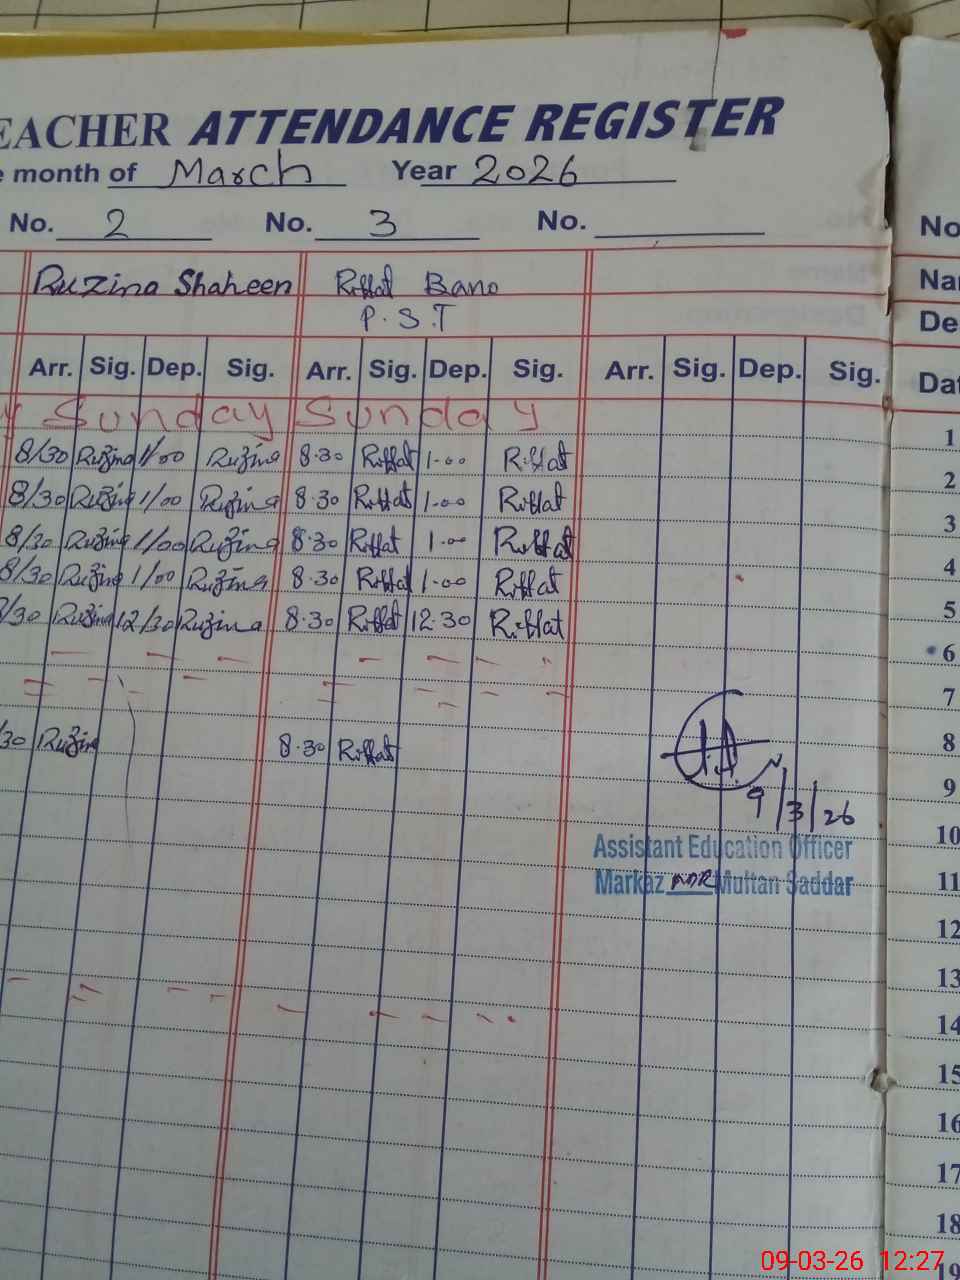 EACHER ATTENDANCE REGISTER
month of March Year 2026
No. 2 No. 3 No.
No
Ruzina Shaheen Riffat Bano
Na
P.S.T
De
Arr. Sig. Dep. Sig. Arr. Sig. Dep. Sig. Arr. Sig. Dep. Sig.
Dat
Sunday Sunday
1
8/30 Ruzina 1/00 Ruzina 8.30 Riffat 1.00 Riffat
2
8/30 Ruzina 1/00 Ruzina 8.30 Riffat 1.00 Riffat
3
8/30 Ruzina 1/00 Ruzina 8.30 Riffat 1.00 Riffat
4
8/30 Ruzina 1/00 Ruzina 8.30 Riffat 1.00 Riffat
5
/30 Ruzina 12/30 Ruzina 8.30 Riffat 12.30 Riffat
6
7
/30 Ruzina 8.30 Riffat
8
9
9/3/26
10
Assistant Education Officer
Markaz Multan Saddar
11
12
13
14
15
16
17
18
19
09-03-26 12:27